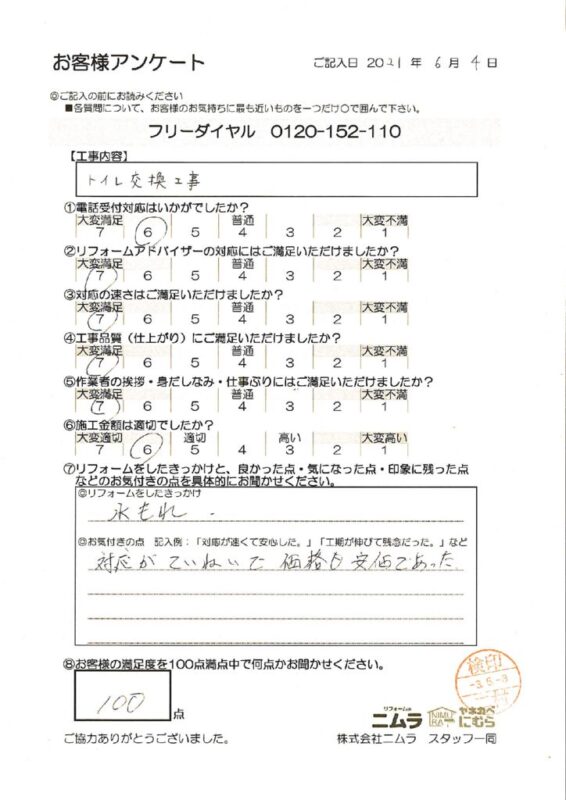 お客様アンケート
ご記入日 2021 年 6 月 4 日
◎ご記入の前にお読みください
■各質問について、お客様のお気持ちに最も近いものを一つだけ〇で囲んで下さい。
フリーダイヤル 0120-152-110
【工事内容】
トイレ交換工事
①電話受付対応はいかがでしたか?
大変満足 普通 大変不満
7 6 5 4 3 2 1
②リフォームアドバイザーの対応にはご満足いただけましたか?
大変満足 普通 大変不満
7 6 5 4 3 2 1
③対応の速さはご満足いただけましたか?
大変満足 普通 大変不満
7 6 5 4 3 2 1
④工事品質(仕上がり)にご満足いただけましたか?
大変満足 普通 大変不満
7 6 5 4 3 2 1
⑤作業者の挨拶・身だしなみ・仕事ぶりにはご満足いただけましたか?
大変満足 普通 大変不満
7 6 5 4 3 2 1
⑥施工金額は適切でしたか?
大変適切 適切 高い 大変高い
7 6 5 4 3 2 1
⑦リフォームをしたきっかけと、良かった点・気になった点・印象に残った点
などのお気付きの点を具体的にお聞かせください。
◎リフォームをしたきっかけ
水もれ.
◎お気付きの点 記入例:「対応が速くて安心した。」「工期が伸びて残念だった。」など
対応がていねいで 価格も安価であった.
⑧お客様の満足度を100点満点中で何点かお聞かせください。
100 点
検印
リフォームの
ニムラ NIMURA ヤネカベ にむら
ご協力ありがとうございました。
株式会社ニムラ スタッフ一同